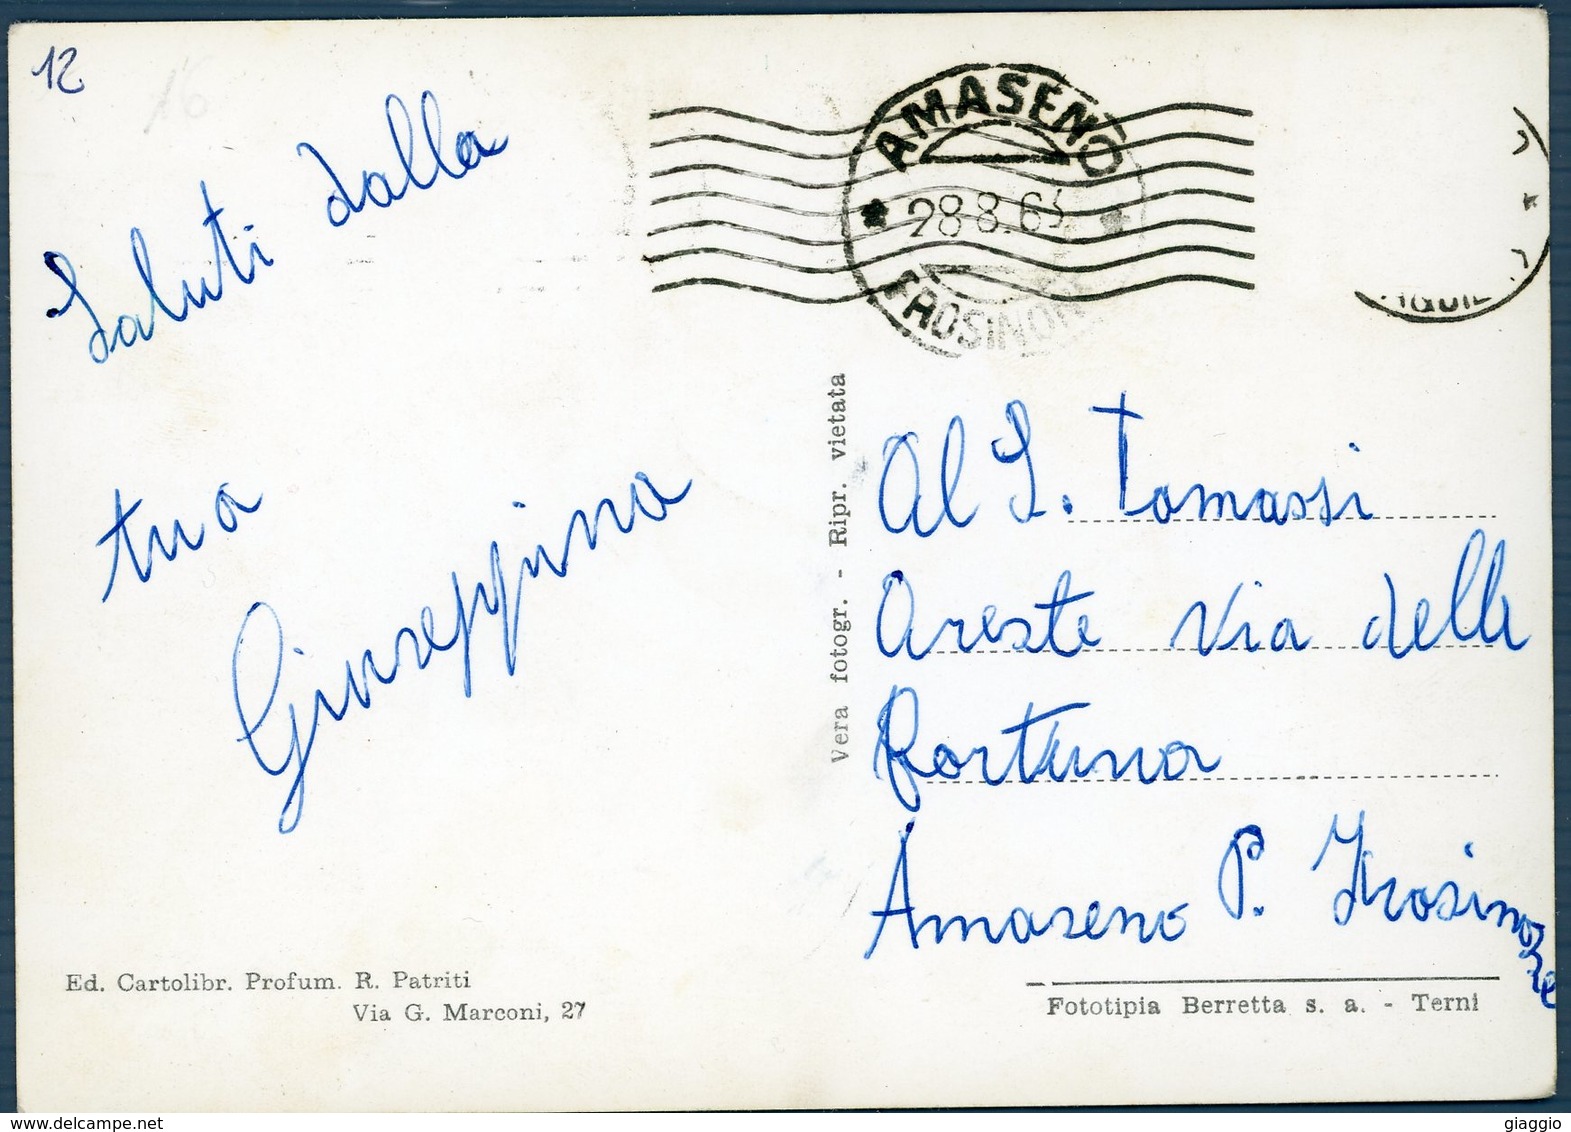 12
16
Saluti dalla
tua
Giuseppina
AMASENO
28.8.63
FROSINONE
Vera fotogr. - Ripr. vietata
Al S. Tomassi
Oreste Via delle
Fortuna
Amaseno P. Frosinone
Ed. Cartolibr. Profum. R. Patriti
Via G. Marconi, 27
Fototipia Berretta s. a. - Terni
delcampe.net
giaggio